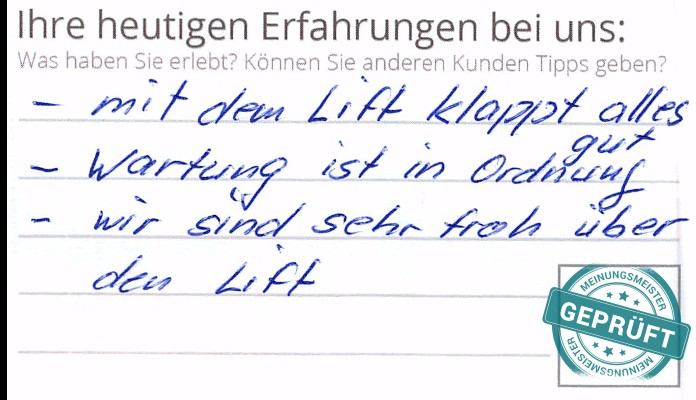 Ihre heutigen Erfahrungen bei uns:
Was haben Sie erlebt? Können Sie anderen Kunden Tipps geben?
- mit dem Lift klappt alles
gut
- Wartung ist in Ordnung
- wir sind sehr froh über
den Lift
MEINUNGSMEISTER
GEPRÜFT
MEINUNGSMEISTER